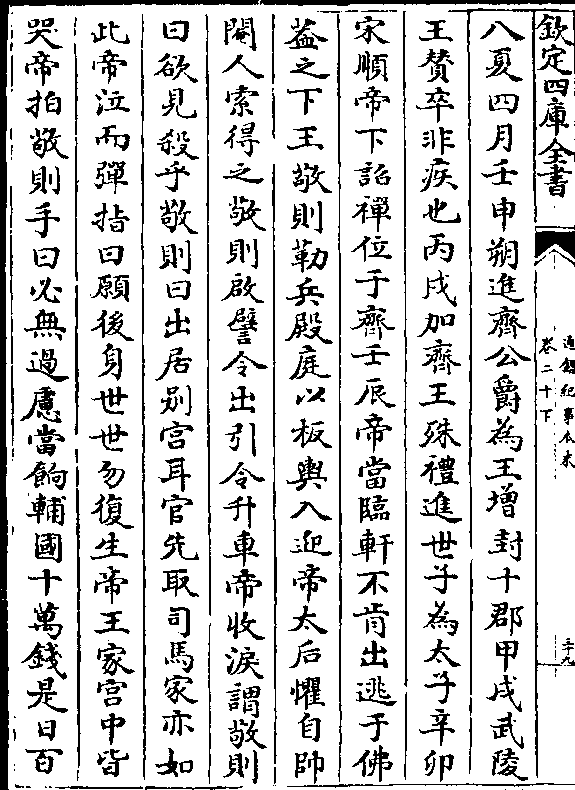 欽定四庫全書
通鑑紀事本末
卷二十下
三十九
八夏四月壬申朔進齊公爵為王增封十郡甲戌武陵
王贊卒非疾也丙戌加齊王殊禮進世子為太子辛卯
宋順帝下詔禪位于齊壬辰帝當臨軒不肯出逃于佛
葢之下王敬則勒兵殿庭以板輿入迎帝太后懼自帥
閹人索得之敬則啟譬令出引令升車帝收淚謂敬則
曰欲見殺乎敬則曰出居别宫耳官先取司馬家亦如
此帝泣而彈指曰願後身世世勿復生帝王家宫中皆
哭帝拍敬則手曰必無過慮當餉輔國十萬錢是日百